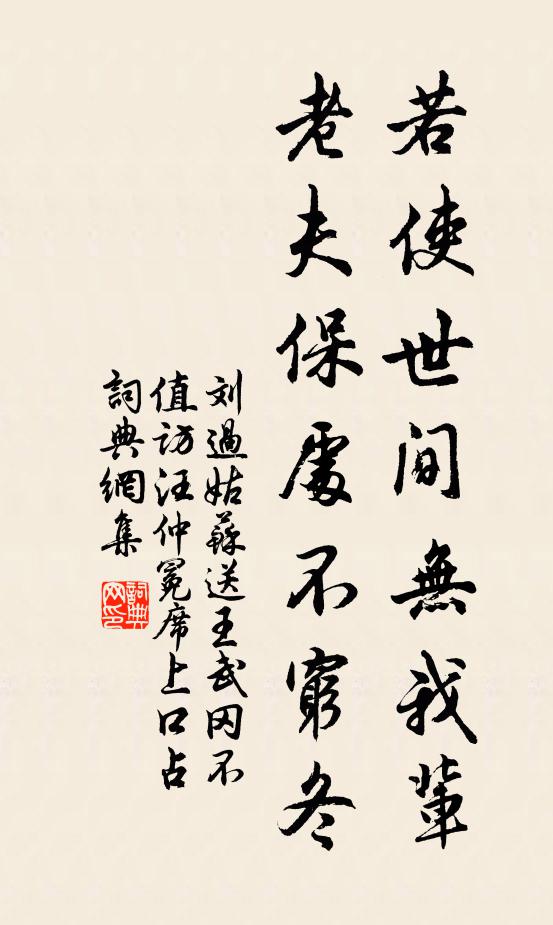 若使世间無我輩
老夫保處不窮冬
刘過姑蘇送王武冈不
值訪汪仲冕席上口占
詞典網集
詞典网印